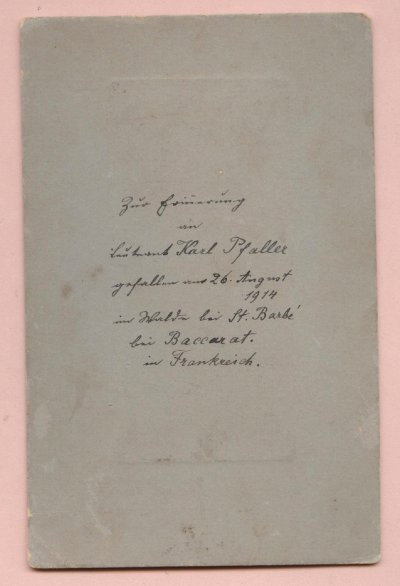 Zur Erinnerung
an
Leutnant Karl Pfaller
gefallen am 26. August
1914
im Walde bei St. Barbé
bei Baccarat.
in Frankreich.